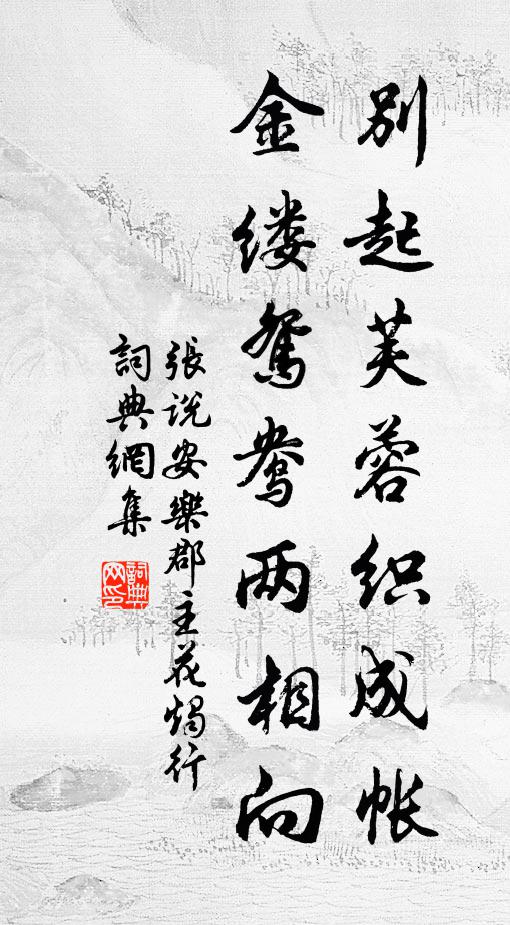 别起芙蓉织成帐
金缕鸳鸯两相向
張说安樂郡主花燭行
詞典網集
詞典
网印